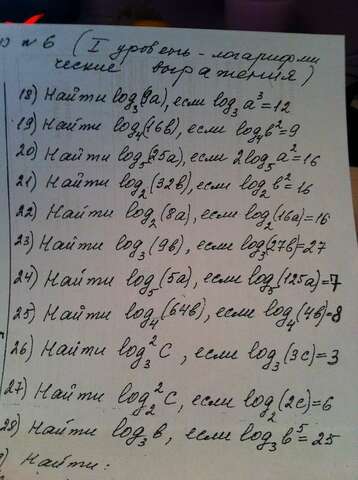 №6 (I уровень - логарифми
ческие выражения)
18) Найти log₃(9a), если log₃a³=12
19) Найти log₄(16в), если log₄в²=9
20) Найти log₅(25a), если 2log₅a²=16
21) Найти log₂(32в), если log₂в²=16
22) Найти log₂(8a), если log₂(16a)=16
23) Найти log₃(9в), если log₃(27в)=27
24) Найти log₅(5a), если log₅(125a)=7
25) Найти log₄(64в), если log₄(4в)=8
26) Найти log₃²C, если log₃(3c)=3
27) Найти log₂²C, если log₂(2c)=6
28) Найти log₃в, если log₃в⁵=25
) Найти: